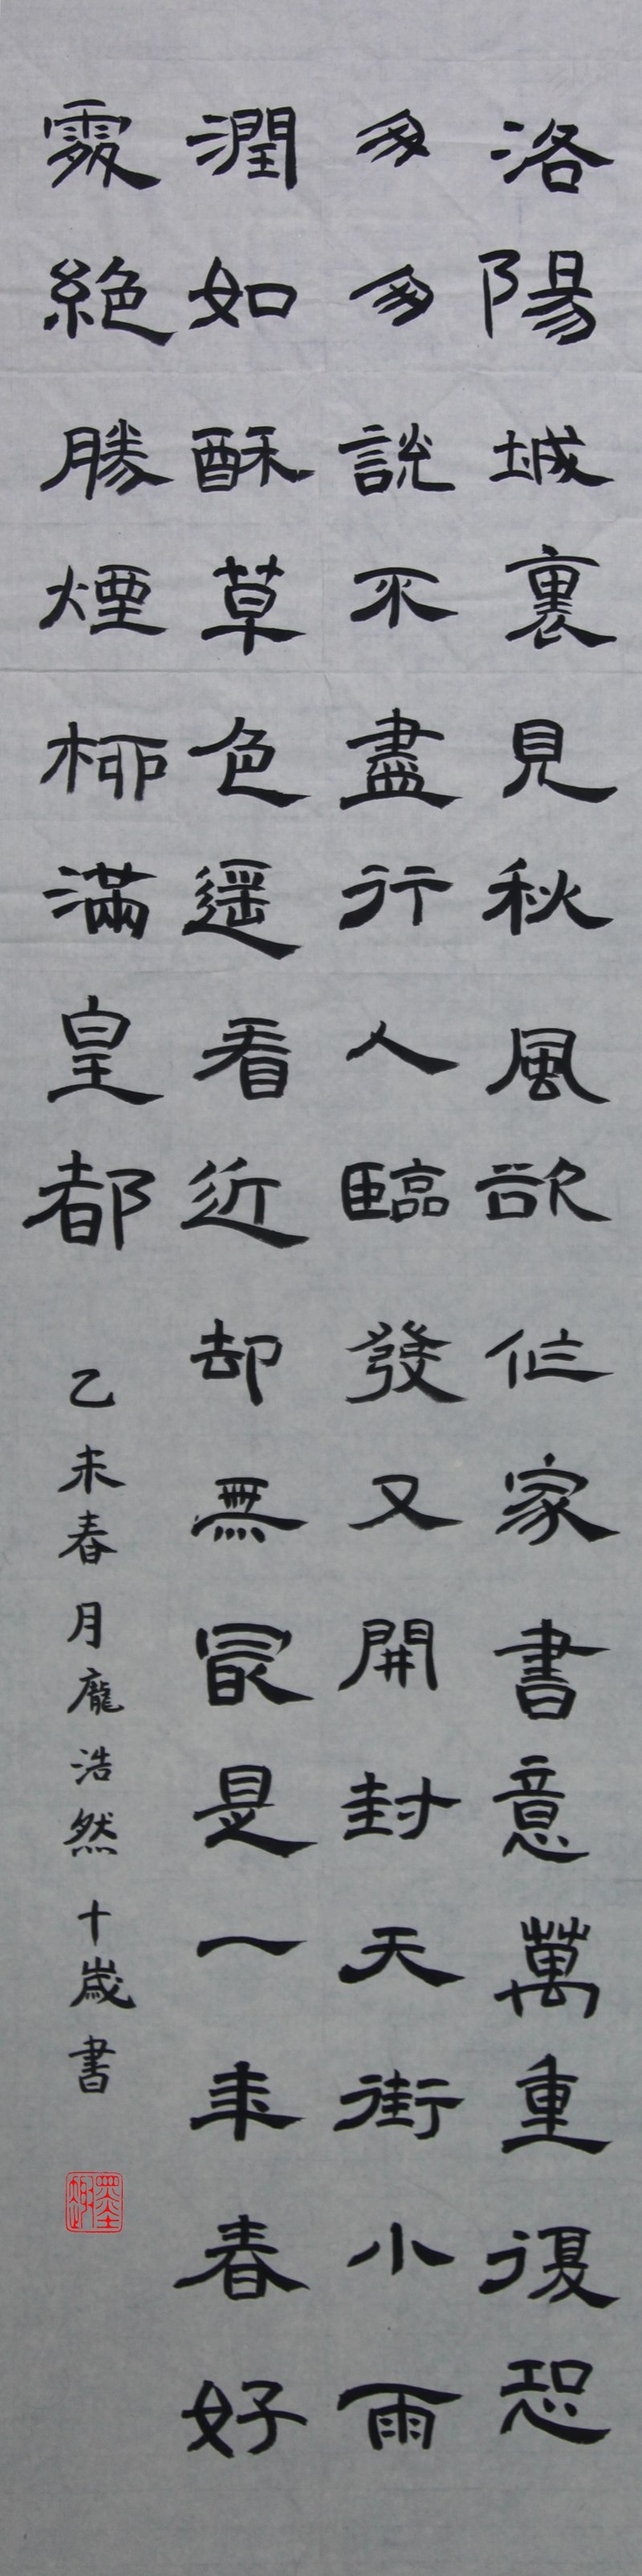 洛陽城裏見秋風欲作家書意萬重復恐
匆匆說不盡行人臨發又開封天街小雨
潤如酥草色遙看近却無最是一年春好
處絕勝煙柳滿皇都
乙未春月龐浩然十歲書
墨趣